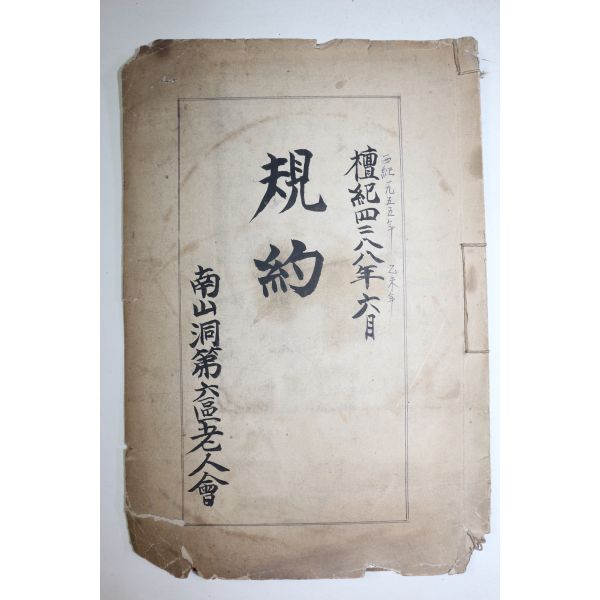 西紀一九五五年 乙未年
檀紀四二八八年 六月
規約
南山洞第六區老人會